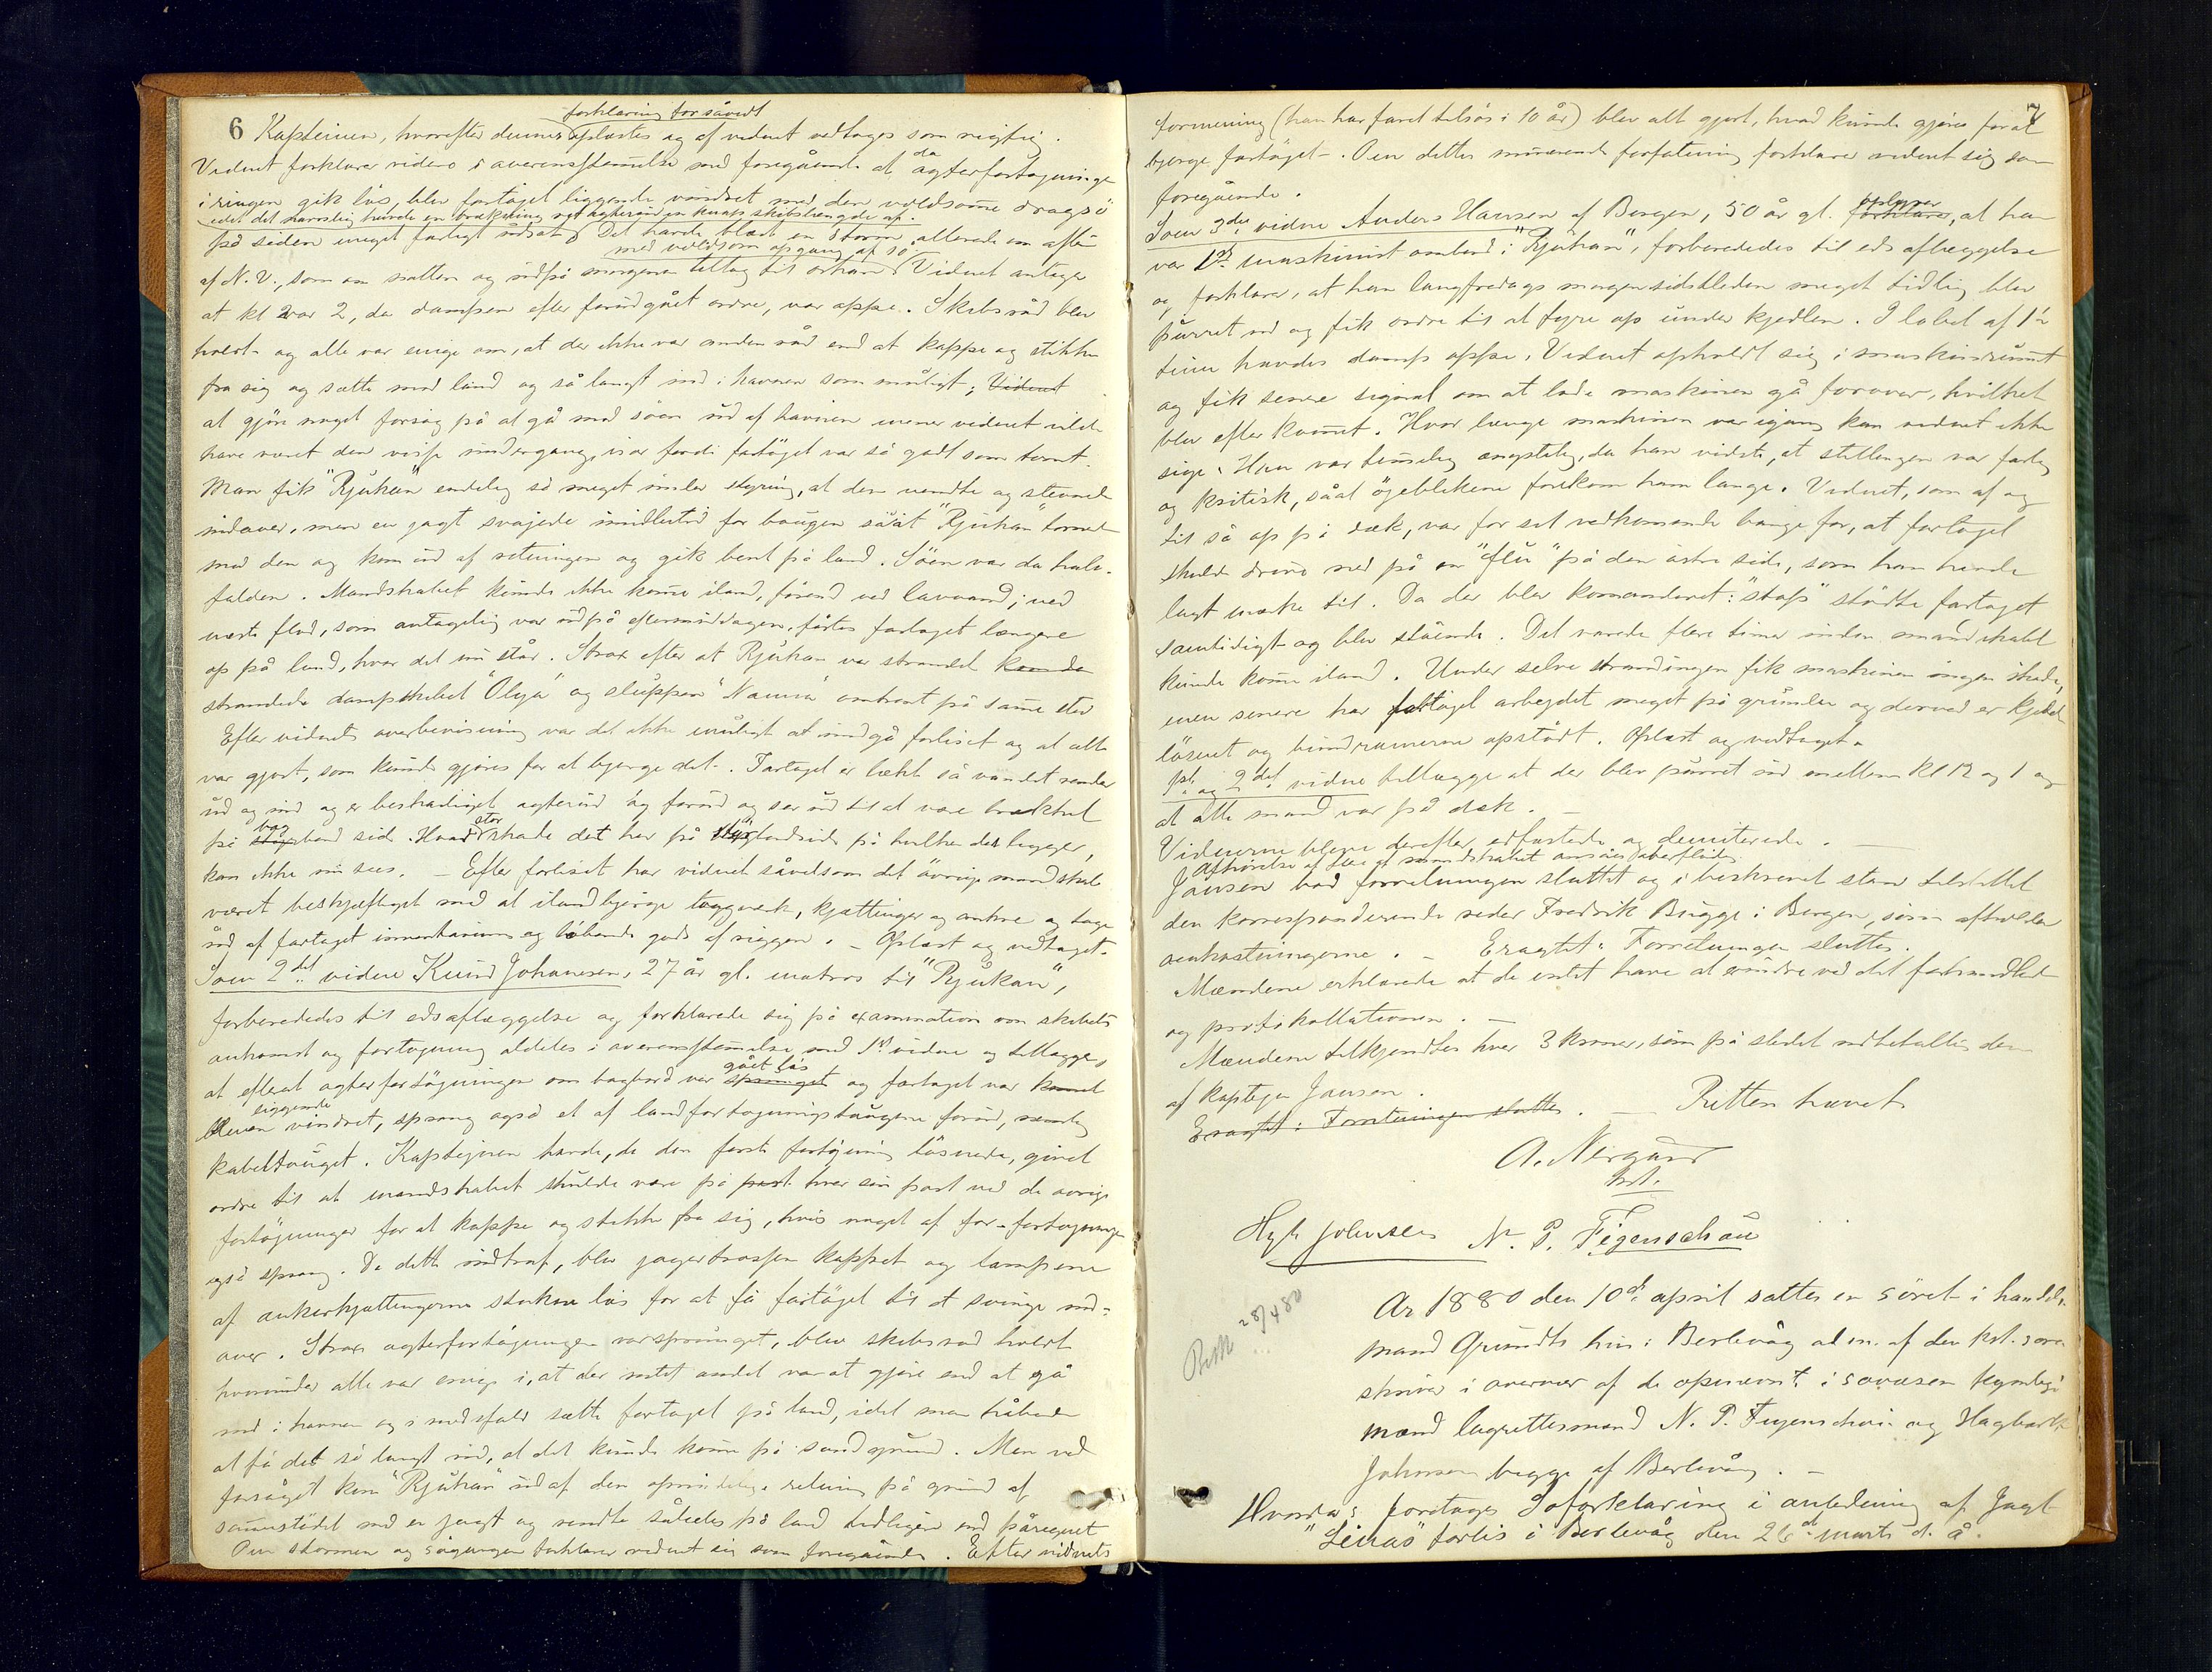 6 Kapteinen, hvorefter dennes forklaring forsåvidt oplæstes og af vidnet vedtoges som rigtig.
Vidnet forklarer videre i overensstemelse med foregående at da agterfortøyninge
i ringen gik løs, blev fartøiet liggende vindret med den voldsome dragsø
på siden meget farligt udsat, idet det navnlig havde en brækning ret agterud en knap skibslængde af. Det havde blæst en storm allerede om aften
af N.V., som om natten og udpå morgenen tiltog til orkan med voldsom opgang af sø. Vidnet antager
at kl var 2, da dampen efter forudgået ordre, var oppe. Skibsråd blev
holdt og alle var enige om, at der ikke var anden råd end at kappe og stikke
fra sig og sætte mod land og så langt ind i havnen som muligt; Vidnet
at gjøre noget forsøg på at gå mod søen ud af havnen mener vidnet vilde
have været den visse undergang, især fordi fartøjet var så godt som tomt.
Man fik "Rjukan" endelig så meget under styring, at den vendte og stevned
indover, men en jagt svajede imidlertid for bougen såat "Rjukan" tørnet
mod den og kom ud af retningen og gik bent på land. Søen var da halv-
falden. Mandskabet kunde ikke kome iland, førend ved lavvand; ved
næste flod, som antagelig var udpå eftermiddagen, førtes fartøjet længere
op på land, hvor det nu står. Strax efter at Rjukan var strandet
strandede dampskibet "Olga" og sluppen "Nanna" omtrent på same sted
Efter vidnets overbevisning var det ikke muligt at undgå forliset og at alt
var gjort, som kunde gjøres for at bjerge det. Fartøjet er læk så vandet render
ud og ind og er beskadiget agterud og forud og ser ud til at være brækket
på bagbord side. Hvad stor skade det har på styrbordside på hvilken det ligger,
kan ikke nu sees. – Efter forliset har vidnet såvelsom det øvrige mandskab
været beskjæftiget med at ilandbjerge taugværk, kjættinger og ankre og tage
ud af fartøjet inventarium og løbende gods af riggen. – Oplæst og vedtaget.
Som 2det vidne Knud Johanesen, 27 år gl. matros til "Rjukan",
forberededes til edsaflæggelse og forklarede sig på examination om skibets
ankomst og fortøyning aldeles i overensstemelse med 1st vidne og tillægger,
at efterat agterfortøjningen om bagbord var sprunget gået løs og fartøjet var
bleven liggende vindret, sprang også et af landfortøyningstaugene forud, nemlig
kabeltouget. Kaptejnen havde, da den første fortøjning løsnede, givet
ordre til at mandskabet skulde være på post hver sin post ved de øvrige
fortøjninger for at kappe og stikke fra sig, hvis noget af for-fortøyninge
også sprang. Da dette indtraf, blev jagertrossen kappet og tampene
af ankerkjættingerne stukne løs for at få fartøjet til at svinge ind-
over. Strax agterfortøjningen var sprunget, blev skibsråd holdt
hvorunder alle var enige i, at der intet andet var at gjøre end at gå
ind i havnen og i nødsfald sætte fartøjet på land, idet man håbede
at få det så langt ind, at det kunde kome på sandgrund. Men ved
forsøget kom "Rjukan" ud af den oprindelige retning på grund af
samenstødet med en jagt og rendte således på land tidligere end påregnet
Om stormen og søgangen forklarer vidnet sig som foregående. Efter vidnets
7
formening (han har faret tilsøs i 10 år) blev alt gjort, hvad kunde gjøres for at
bjerge fartøjet. Om dettes nuværende forfatning forklarer vidnet sig som
foregående.
Som 3die vidne Anders Hansen af Bergen, 50 år gl. forklarer oplyser, at han
var 1st maskinist ombord i "Rjukan", forberededes til eds aflæggelse
og forklarer, at han langfredags morgen sidstleden meget tidlig blev
purret ud og fik ordre til at fyre op under kjedlen. I løbet af 1½
time havdes damp oppe. Vidnet opholdt sig i maskinrumet
og fik senere signal om at lade maskinen gå forover, hvilket
blev efterkomet. Hvor længe maskinen var igang kan vidnet ikke
sige. Han var temelig ængstelig, da han vidste, at stillingen var farlig
og kritisk, såat øjeblikkene forekom ham lange. Vidnet, som af og
til så op på dæk, var for sit vedkomende bange for, at fartøjet
skulde drive ned på en "flu" på den østre side, som han havde
lagt mærke til. Da der blev komanderet: "stop" stødte fartøjet
samtidigt og blev stående. Det varede flere timer inden mandskabet
kunde kome iland. Under selve strandingen fik maskinen ingen skade,
men senere har fartøjet arbejdet meget på grunden og derved er kjedel
løsnet og bundramerne opstødt. Oplæst og vedtaget.
1st og 2det vidne tillægger at der blev purret ud mellem kl 12 og 1 og
at alle mand var på dæk. –
Vidnerne bleve derefter edfæstede og demiterede. –
Afhørelse af flere af mandskabet ansåes overflødig.
Jansen bad forretningen sluttet og i beskrevet stand tilstillet
den korresponderende reder Fredrik Brügge i Bergen, som afholder
omkostningerne. – Eragtet: Forretningen sluttes.
Mændene erklærede at de intet have at erindre ved det forhandlede
og protokollationen. –
Mændene tilkjendtes hver 3 kroner, som på stedet udbetaltes dem
af kaptejn Jansen.
Eragtet: Forretningen sluttes. – Retten hævet
A. Nergaard
kst.
Hgb Johnsen N. P. Figenschau
Besk 28/4 80
År 1880 den 10de april sattes en søret i handels-
mand Grundts hus i Berlevåg adm. af den kst. soren-
skriver i overvær af de opnævnte i søvæsen kyndige
mænd lagrettesmænd N. P. Figenschau og Hagbarth
Johnsen begge af Berlevåg. –
Hvorda: foretoges Søforklaring i anledning af Jagt
"Linas" forlis i Berlevåg den 26de marts d. å.